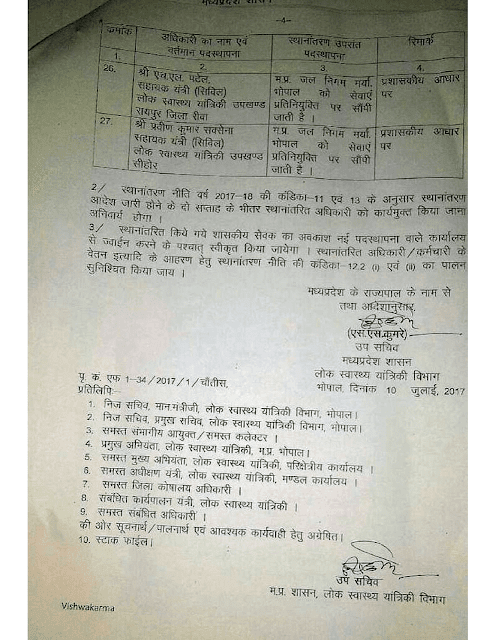 मध्यप्रदेश
-4-
क्रमांक अधिकारी का नाम एवं वर्तमान पदस्थापना स्थानांतरण उपरांत पदस्थापना रिमार्क
1. 2. 3. 4.
26. श्री एच.एल. पटेल, म.प्र. जल निगम मर्या. प्रशासकीय आधार
सहायक यंत्री (सिविल) भोपाल को सेवाएं पर
लोक स्वास्थ्य यांत्रिकी उपखण्ड प्रतिनियुक्ति पर सौंपी
रायपुर जिला रीवा जाती है ।
27. श्री प्रवीण कुमार सक्सेना म.प्र. जल निगम मर्या. प्रशासकीय आधार
सहायक यंत्री (सिविल) भोपाल को सेवाएं पर
लोक स्वास्थ्य यांत्रिकी उपखण्ड प्रतिनियुक्ति पर सौंपी
सीहोर जाती है ।
2/ स्थानांतरण नीति वर्ष 2017-18 की कंडिका-11 एवं 13 के अनुसार स्थानांतरण
आदेश जारी होने के दो सप्ताह के भीतर स्थानांतरित अधिकारी को कार्यमुक्त किया जाना
अनिवार्य होगा ।
3/ स्थानांतरित किये गये शासकीय सेवक का अवकाश नई पदस्थापना वाले कार्यालय
से ज्वाईन करने के पश्चात् स्वीकृत किया जायेगा । स्थानांतरित अधिकारी/कर्मचारी के
वेतन इत्यादि के आहरण हेतु स्थानांतरण नीति की कंडिका-12.2 (i) एवं (ii) का पालन
सुनिश्चित किया जाय ।
मध्यप्रदेश के राज्यपाल के नाम से
तथा आदेशानुसार,
(एस.एस.कुमरे)
उप सचिव
मध्यप्रदेश शासन
लोक स्वास्थ्य यांत्रिकी विभाग
पृ. क्र. एफ 1-34/2017/1/चौंतीस, भोपाल, दिनांक 10 जुलाई, 2017
प्रतिलिपि:-
1. निज सचिव, मान.मंत्रीजी, लोक स्वास्थ्य यांत्रिकी विभाग, भोपाल।
2. निज सचिव, प्रमुख सचिव, लोक स्वास्थ्य यांत्रिकी विभाग, भोपाल।
3. समस्त संभागीय आयुक्त/समस्त कलेक्टर ।
4. प्रमुख अभियंता, लोक स्वास्थ्य यांत्रिकी, म.प्र. भोपाल।
5. समस्त मुख्य अभियंता, लोक स्वास्थ्य यांत्रिकी, परिक्षेत्रीय कार्यालय ।
6. समस्त अधीक्षण यंत्री, लोक स्वास्थ्य यांत्रिकी, मण्डल कार्यालय ।
7. समस्त जिला कोषालय अधिकारी ।
8. संबंधित कार्यपालन यंत्री, लोक स्वास्थ्य यांत्रिकी ।
9. समस्त संबंधित अधिकारी ।
की ओर सूचनार्थ/पालनार्थ एवं आवश्यक कार्यवाही हेतु अग्रेषित।
10. स्टाक फाईल।
उप सचिव
म.प्र. शासन, लोक स्वास्थ्य यांत्रिकी विभाग
Vishwakarma